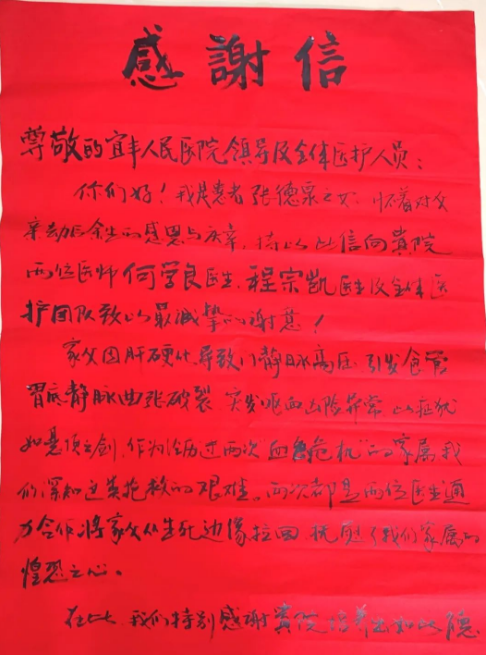 感謝信
尊敬的宜丰人民医院领导及全体医护人员：
你们好！我是患者张德泉之女，怀着对父
亲劫后余生的感恩与庆幸，特以此信向贵院
两位医师何学良医生、程宗凯医生及全体医
护团队致以最诚挚的谢意！
家父因肝硬化导致门静脉高压引发食管
胃底静脉曲张破裂，突发呕血凶险异常，此症状
如悬顶之剑，作为经历过两次“血色危机”的家属，我
们深知这类抢救的艰难。两次都是两位医生通
力合作将家父从生死边缘拉回，抚慰了我们家属的
惶恐之心。
在此，我们特别感谢贵院培养出如此德